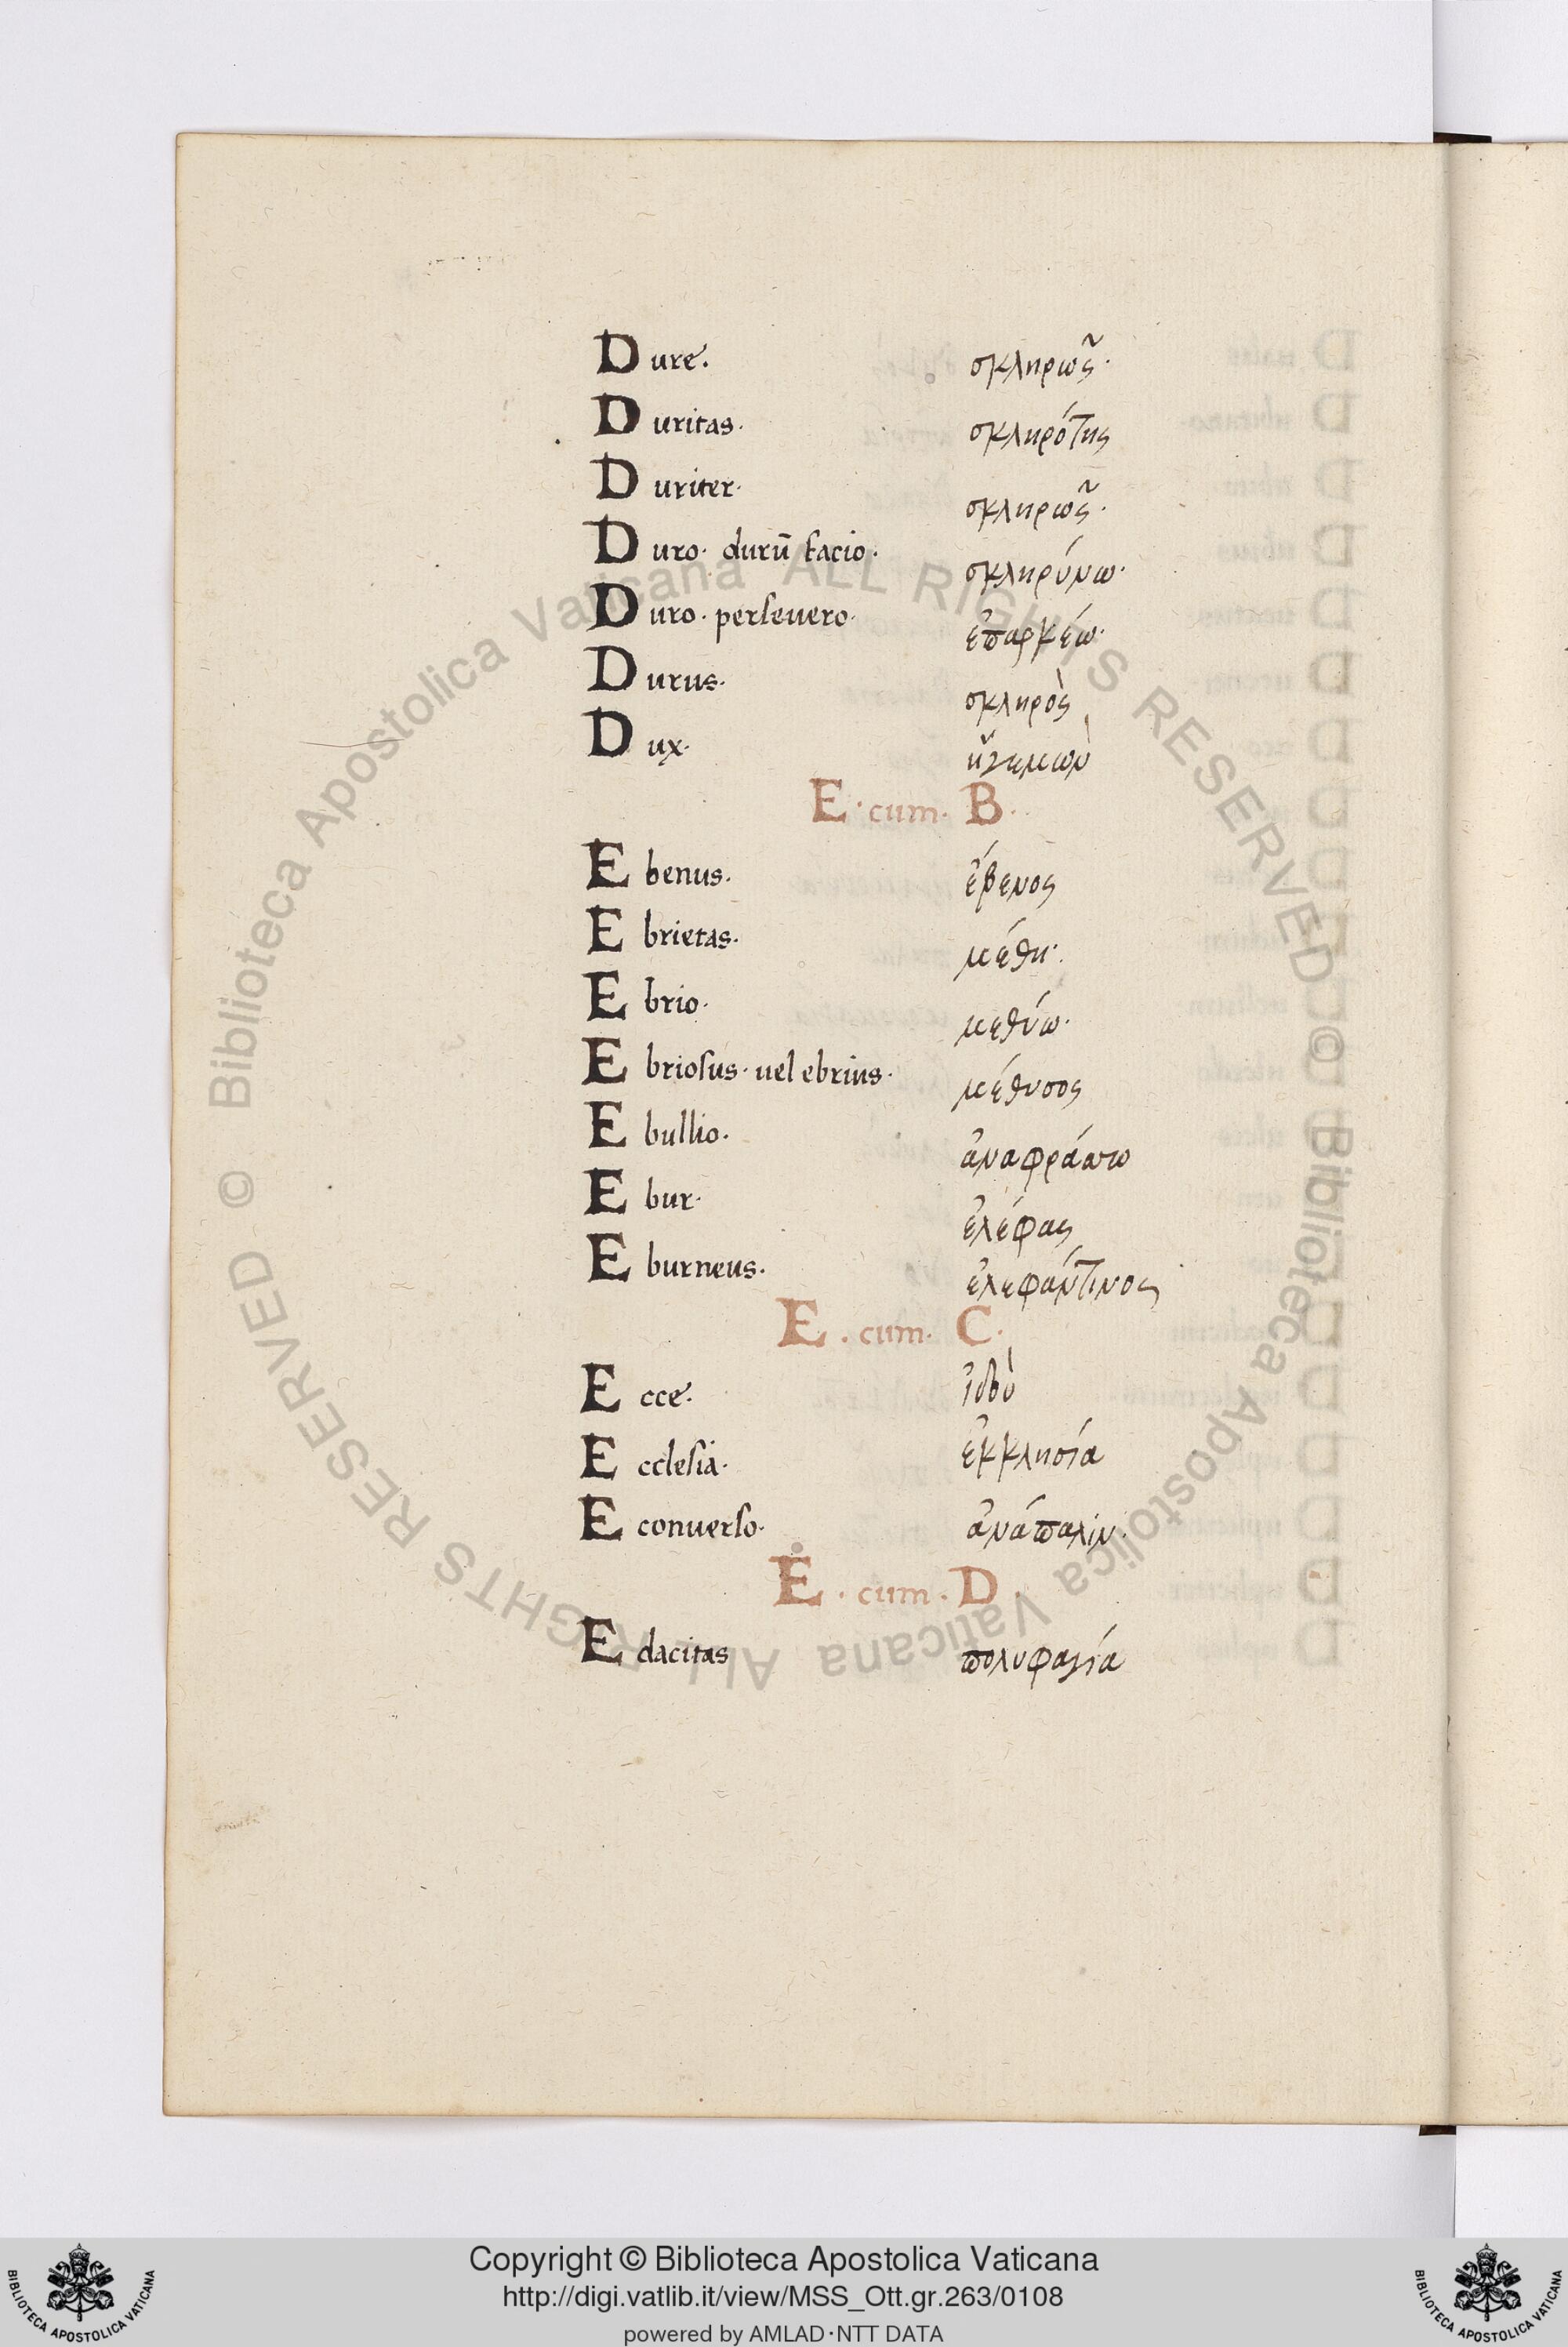 Dure. σκληρῶς·
Duritas. σκληρότης
Duriter. σκληρῶς·
Duro. durū facio. σκληρύνω·
Duro. perseuero. ἐπαρκέω·
Durus. σκληρὸς
Dux.
E. cum. B.
Ebenus. ἔβενος
Ebrietas. μέθη·
Ebrio. μεθύω·
Ebriosus. uel ebrius. μέθυσος
Ebullio.
Ebur. ἐλέφας
Eburneus. ἐλεφάντινος
E. cum. C.
Ecce. ἰδοὺ
Ecclesia. ἐκκλησία
Econuerso. ἀνάπαλιν·
E. cum. D.
Edacitas πολυφαγία
© Biblioteca Apostolica Vaticana ALL RIGHTS RESERVED © Biblioteca Apostolica Vaticana ALL RIGHTS RESERVED
Copyright © Biblioteca Apostolica Vaticana
http://digi.vatlib.it/view/MSS_Ott.gr.263/0108
powered by AMLAD·NTT DATA
BIBLIOTECA APOSTOLICA VATICANA
BIBLIOTECA APOSTOLICA VATICANA